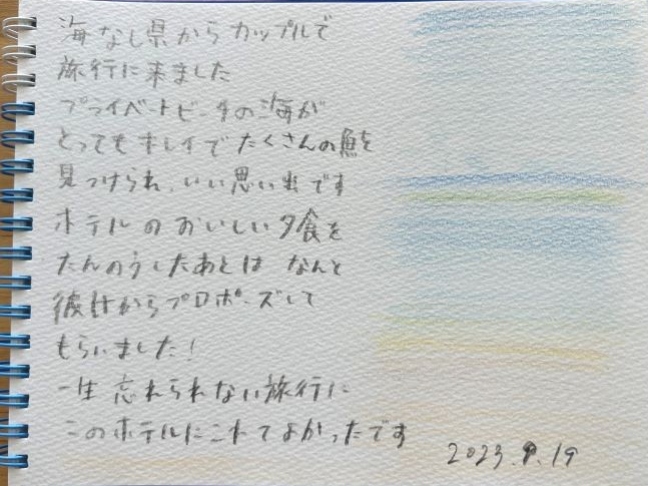 海なし県からカップルで
旅行に来ました
プライベートビーチの海が
とってもキレイでたくさんの魚を
見つけられ、いい思い出です
ホテルのおいしい夕食を
たんのうしたあとは なんと
彼氏からプロポーズして
もらいました!
一生忘れられない旅行に
このホテルにこれてよかったです
2023.9.19